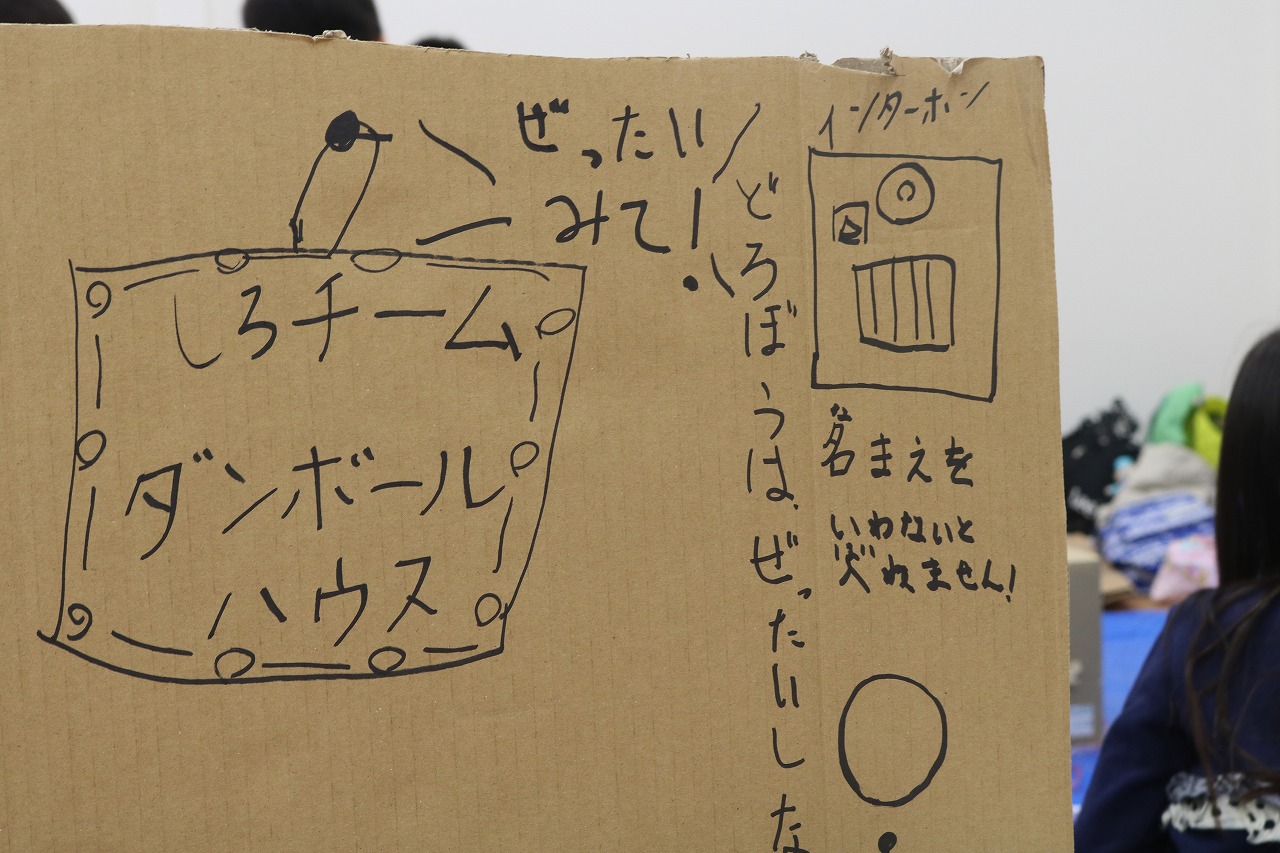 ぜったい
みて!
しろチーム
ダンボール
ハウス
どろぼうは、ぜったいしな
インターホン
名まえを
いわないと
入れません!